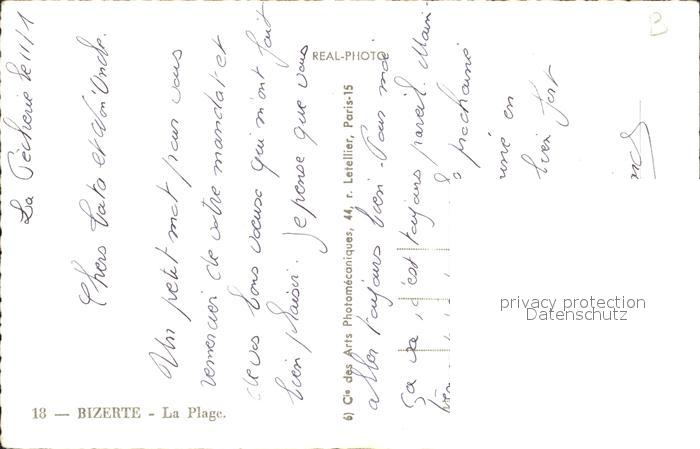 La Pêcherie le 11/1
Chers Tata et Tonton
Un petit mot pour vous
remercier de votre mandat et
de vos bons voeux qui m'ont fait
bien plaisir. Je pense que vous
allez toujours bien. Pour moi
ça va, c'est toujours pareil. Main-
prochaine
en
bien fort
REAL-PHOTO
6) Cie des Arts Photomécaniques, 44, r. Letellier, Paris-15
18 — BIZERTE - La Plage.
B
privacy protection
Datenschutz